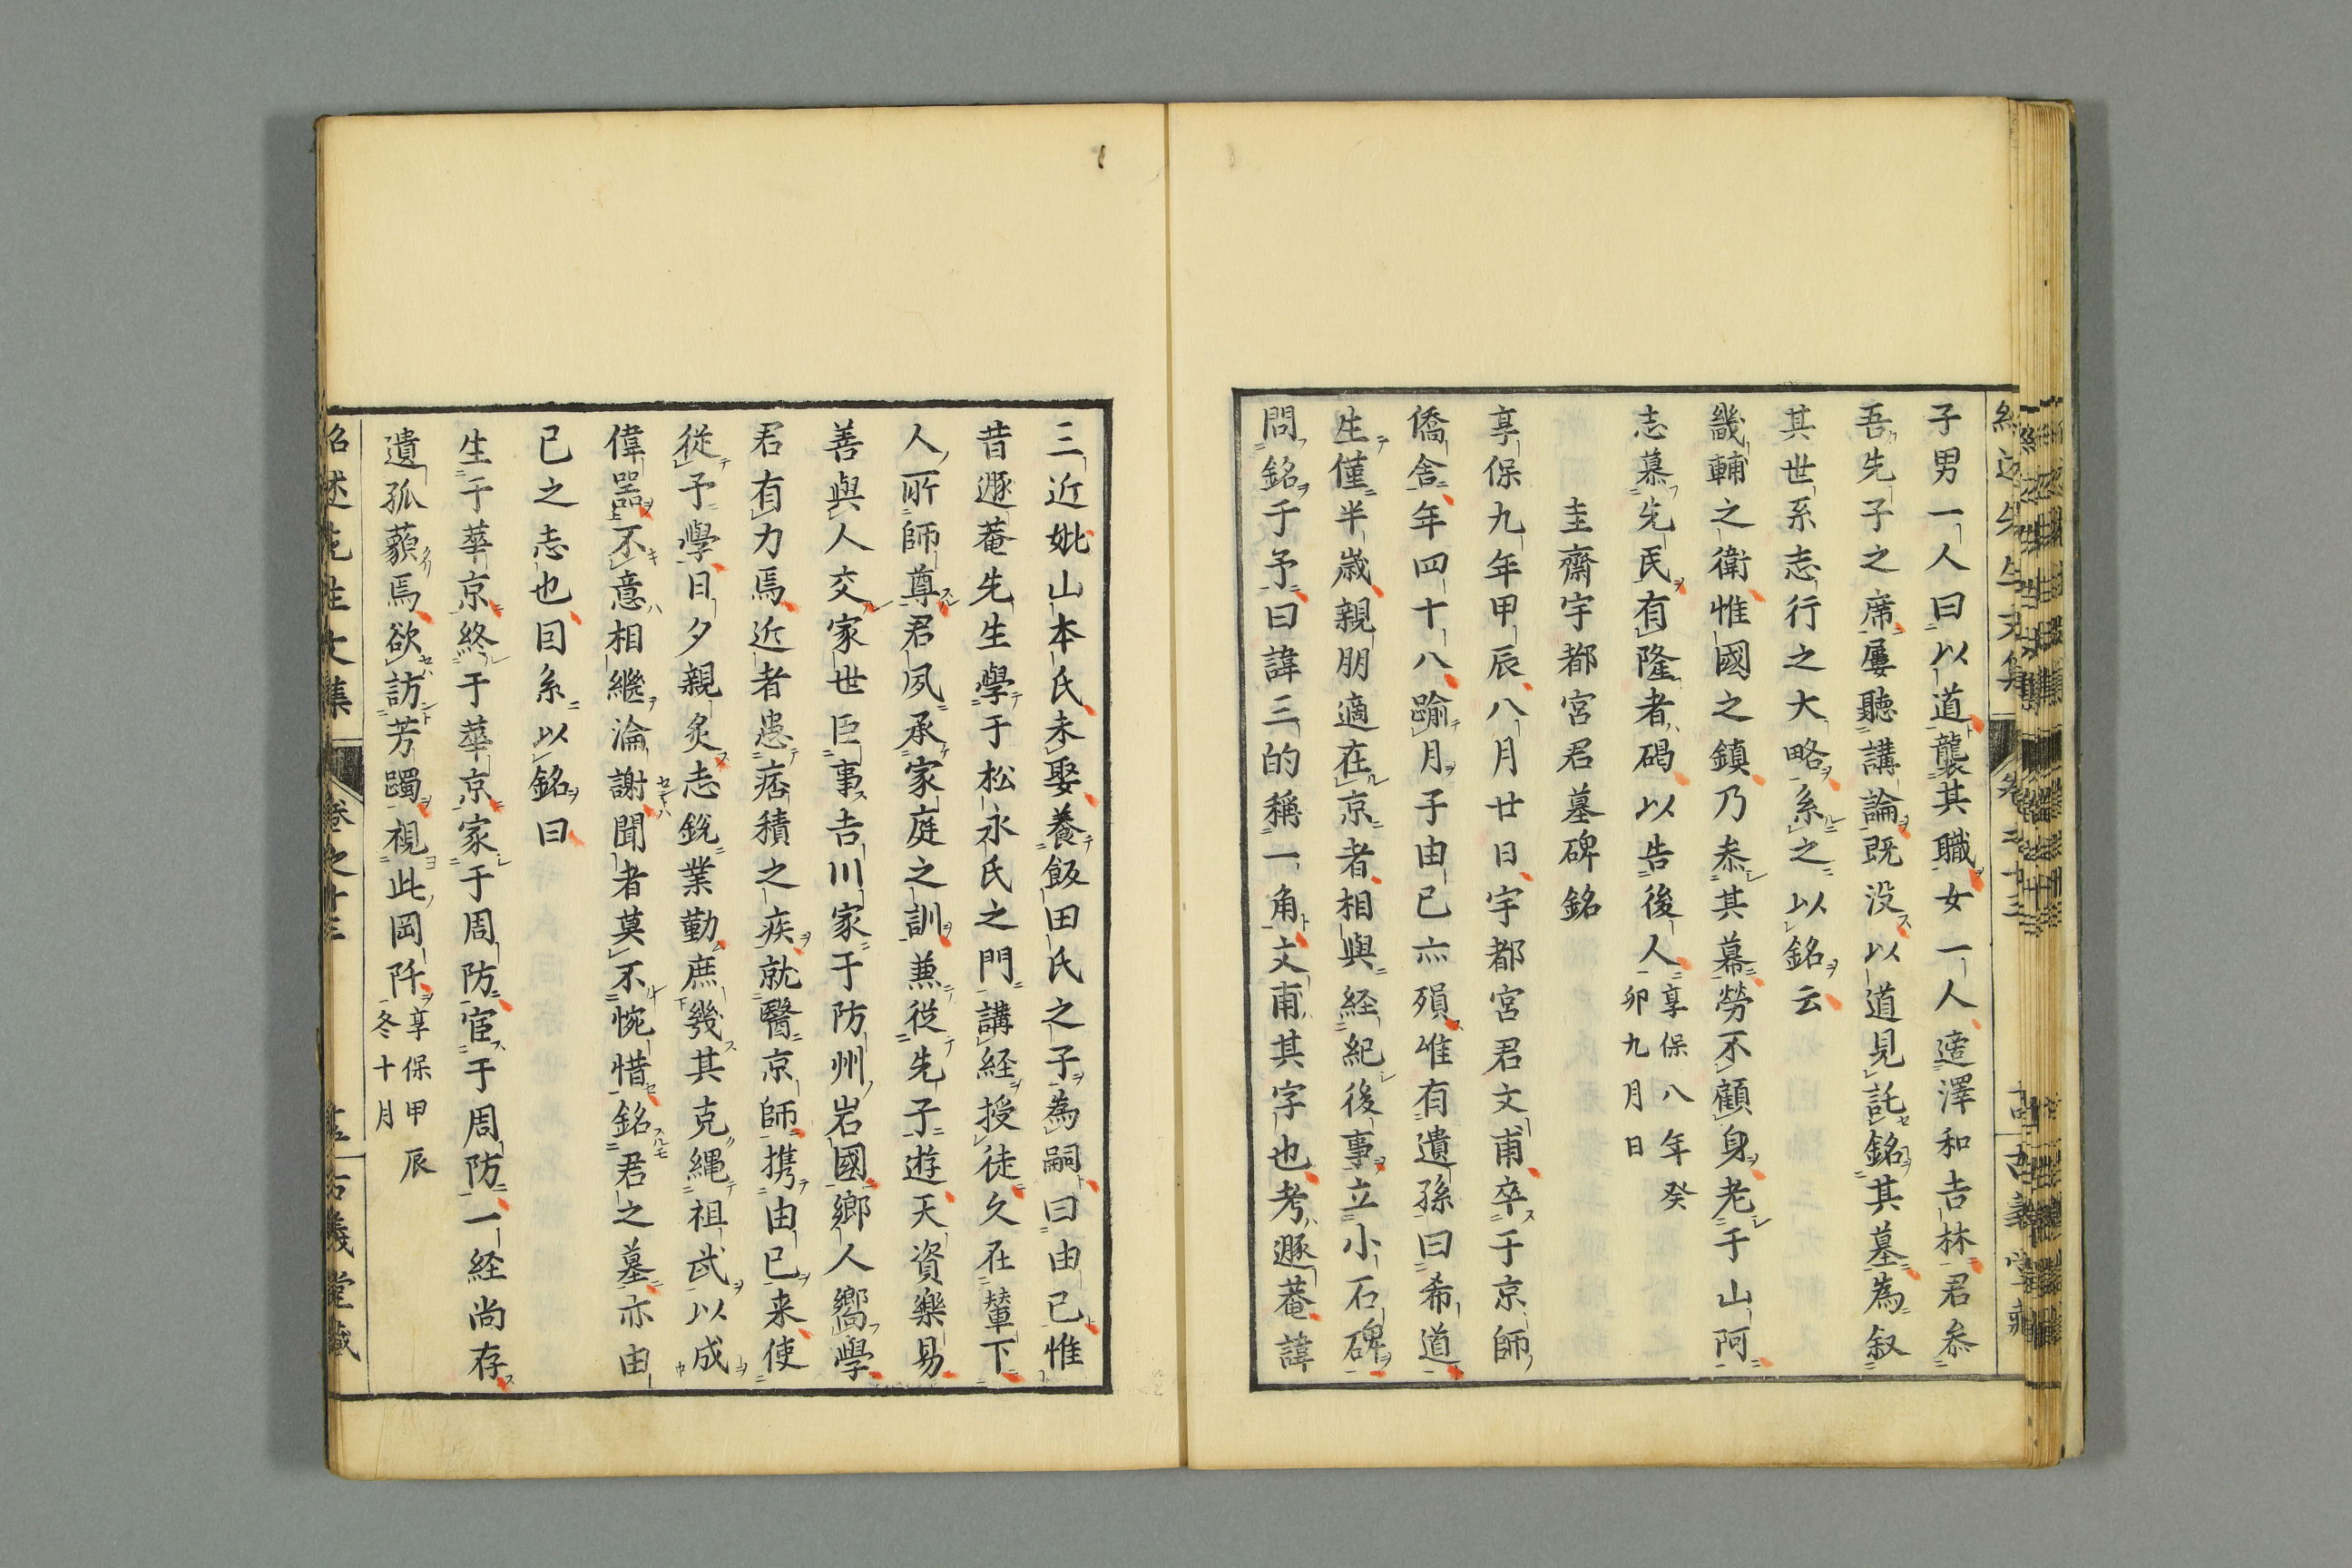 子男一人曰以道襲其職女一人適澤和吉林君叅
吾先子之席屢聽講論既没以道見託銘其墓為叙
其世系志行之大略系之以銘云
畿輔之衛惟國之鎮乃叅其幕勞不顧身老于山阿
志慕先民有隆者碣以告後人享保八年癸
卯九月日
圭齋宇都宮君墓碑銘
享保九年甲辰八月廿日宇都宮君文甫卒于京師
僑舎年四十八踰月子由已亦殞惟有遺孫曰希道
生僅半歳親朋適在京者相與経紀後事立小石碑
問銘于予曰諱三的稱一角文甫其字也考遯菴諱
三近妣山本氏未娶養飯田氏之子為嗣曰由已惟
昔遯菴先生學于松永氏之門講経授徒久在輦下
人所師尊君夙承家庭之訓兼従先子遊天資樂易
善與人交家世臣事吉川家于防州岩國鄉人嚮學
君有力焉近者患痞積之疾就醫京師携由已来使
従予學日夕親炙志鋭業勤庶幾其克縄祖武以成
偉器不意相繼淪謝聞者莫不惋惜銘君之墓亦由
已之志也因系以銘曰
生于華京終于華京家于周防宦于周防一経尚存
遺孤藐焉欲訪芳躅視此岡阡享保甲辰
冬十月
紹述先生文集 卷之十三 古義堂藏